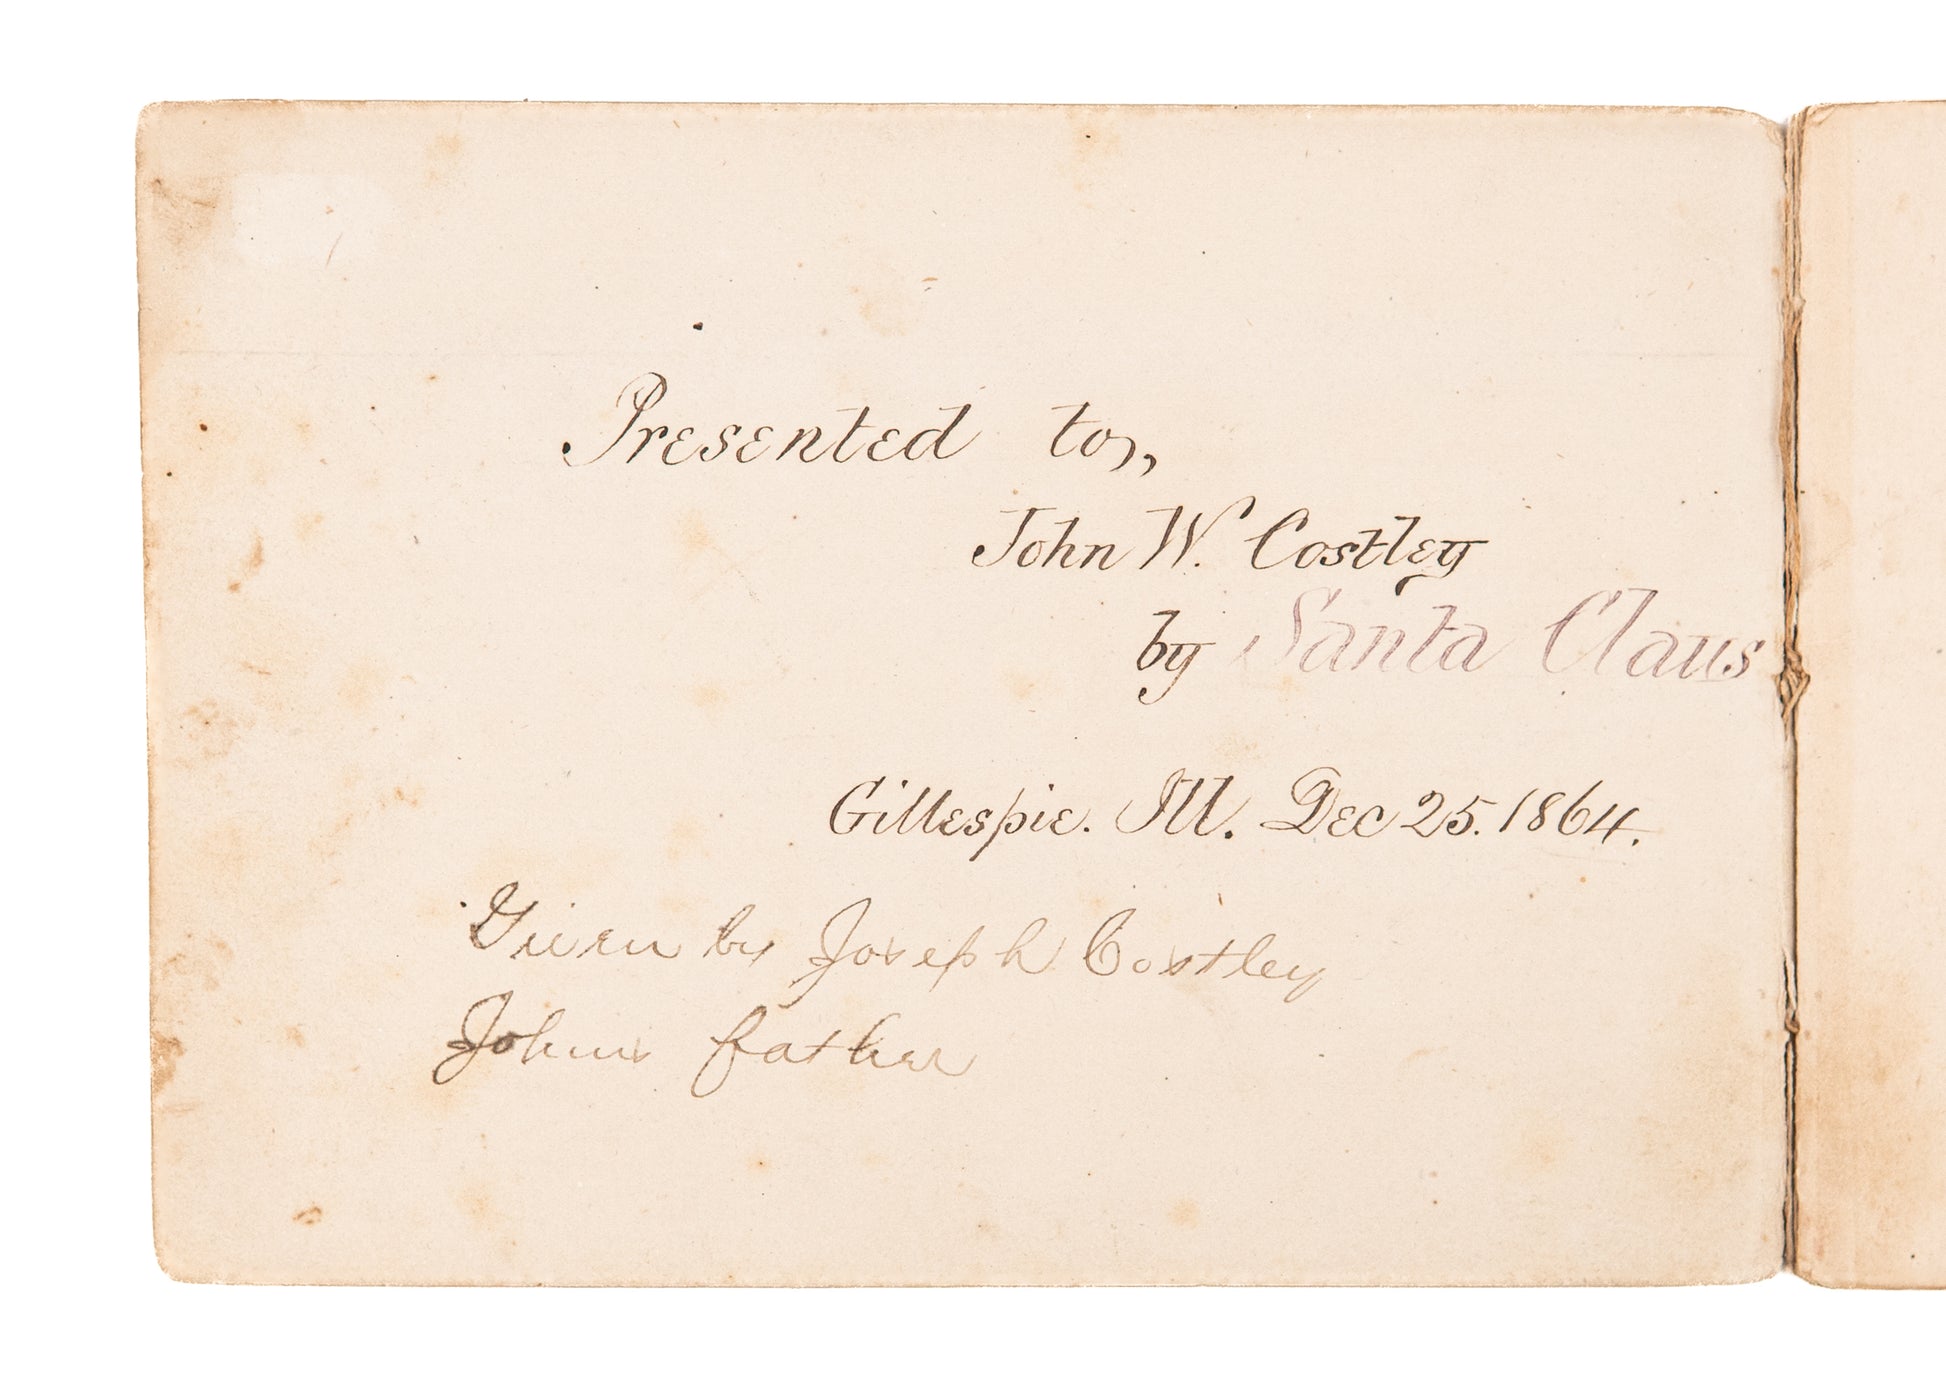 Presented to,,
John W. Costley
by Santa Claus
Gillespie. Ill. Dec 25. 1864.
Given by Joseph Costley
Johns father